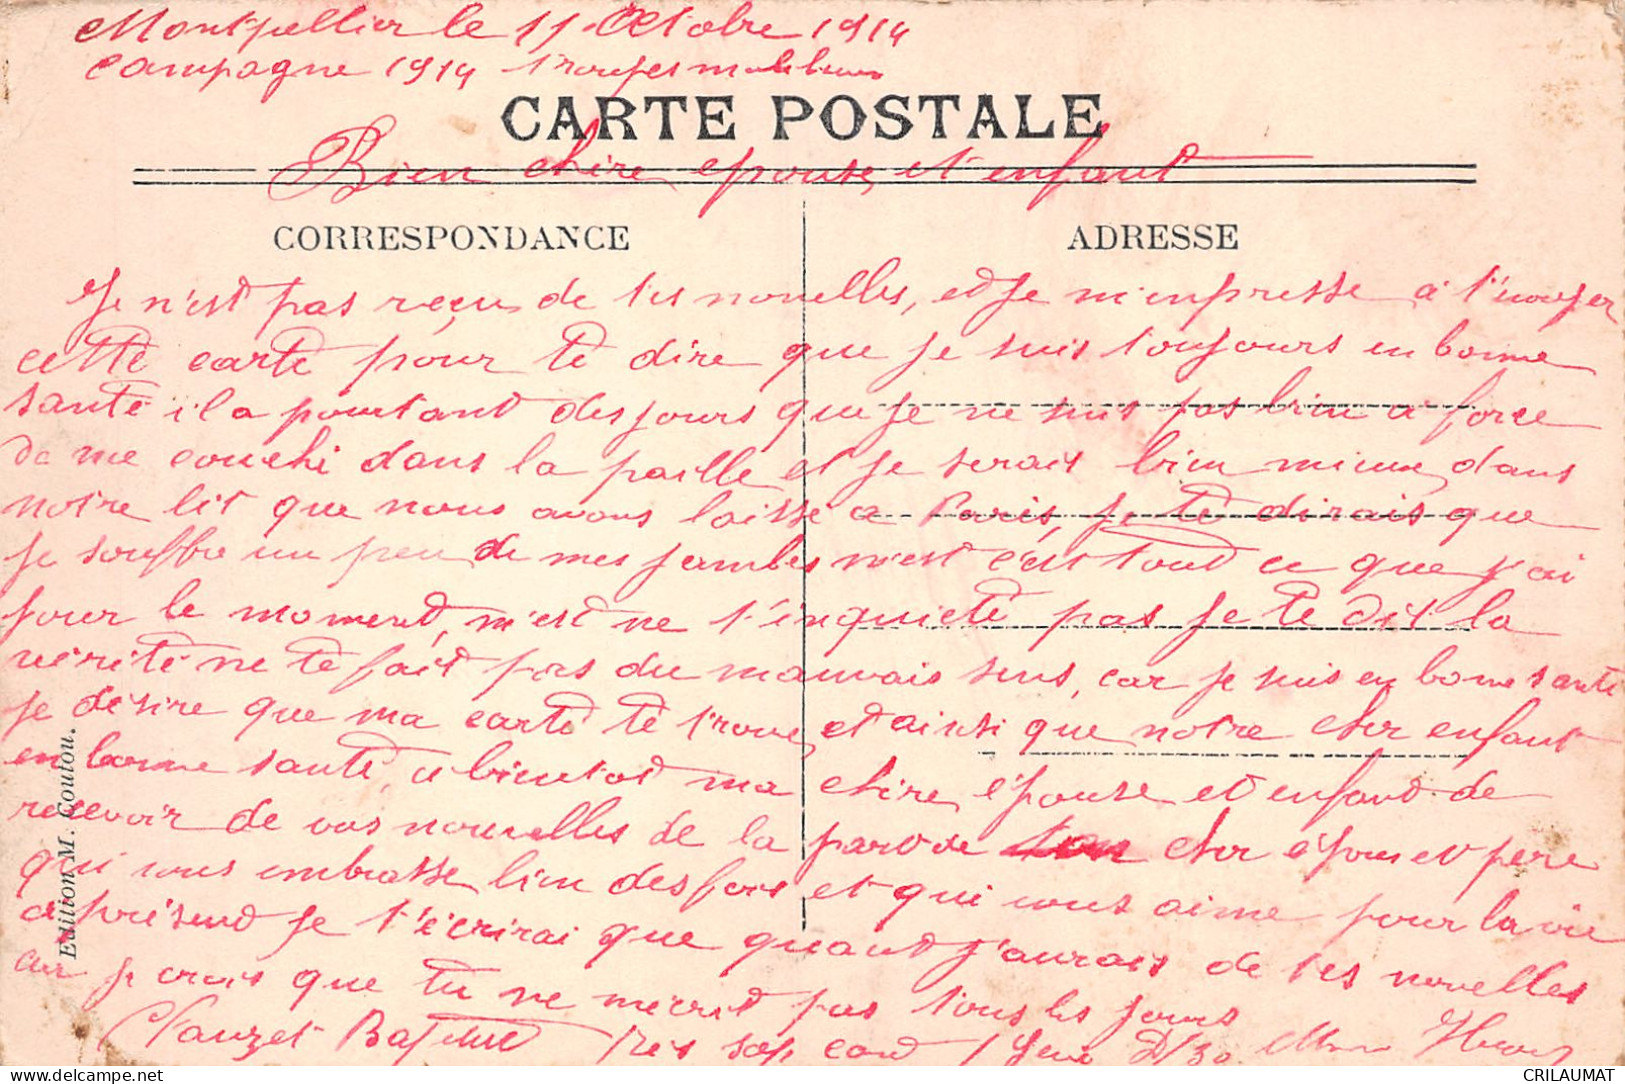 Montpellier le 11 Octobre 1914
Campagne 1914 troupes
CARTE POSTALE
Bien chire epouse, et enfant
CORRESPONDANCE
ADRESSE
Je n'est pas reçu de tes nouvelles, et Je m'enpresse a t'envoyer
cette carte pour te dire que je suis toujours en bonne
santé il a pourtant des jours que je ne suis pas bien a force
de me couché dans la paille et je serait bien mieux dans
notre lit que nous avons laisse a Paris, je te dirais que
je souffre un peu de mes jambes m'est c'est tout ce que j'ai
pour le moment, m'est ne t'inquiete pas je te dit la
vérité ne te fait pas du mauvais sens, car je suis en bonne santé
je désire que ma carte te trouve, et ainsi que notre cher enfant
en bonne santé, a bientot ma chire épouse et enfant de
recevoir de vos nouvelles de la part de ton cher épous et pere
qui vous embrasse bien des fois et qui vous aime pour la vie
a présent je t'écrirai que quant j'aurais de tes nouvelles
car je crois que tu ne mécrit pas tous les jours
Clauzet Batiste
Edition M. Coutou.
CRILAUMAT